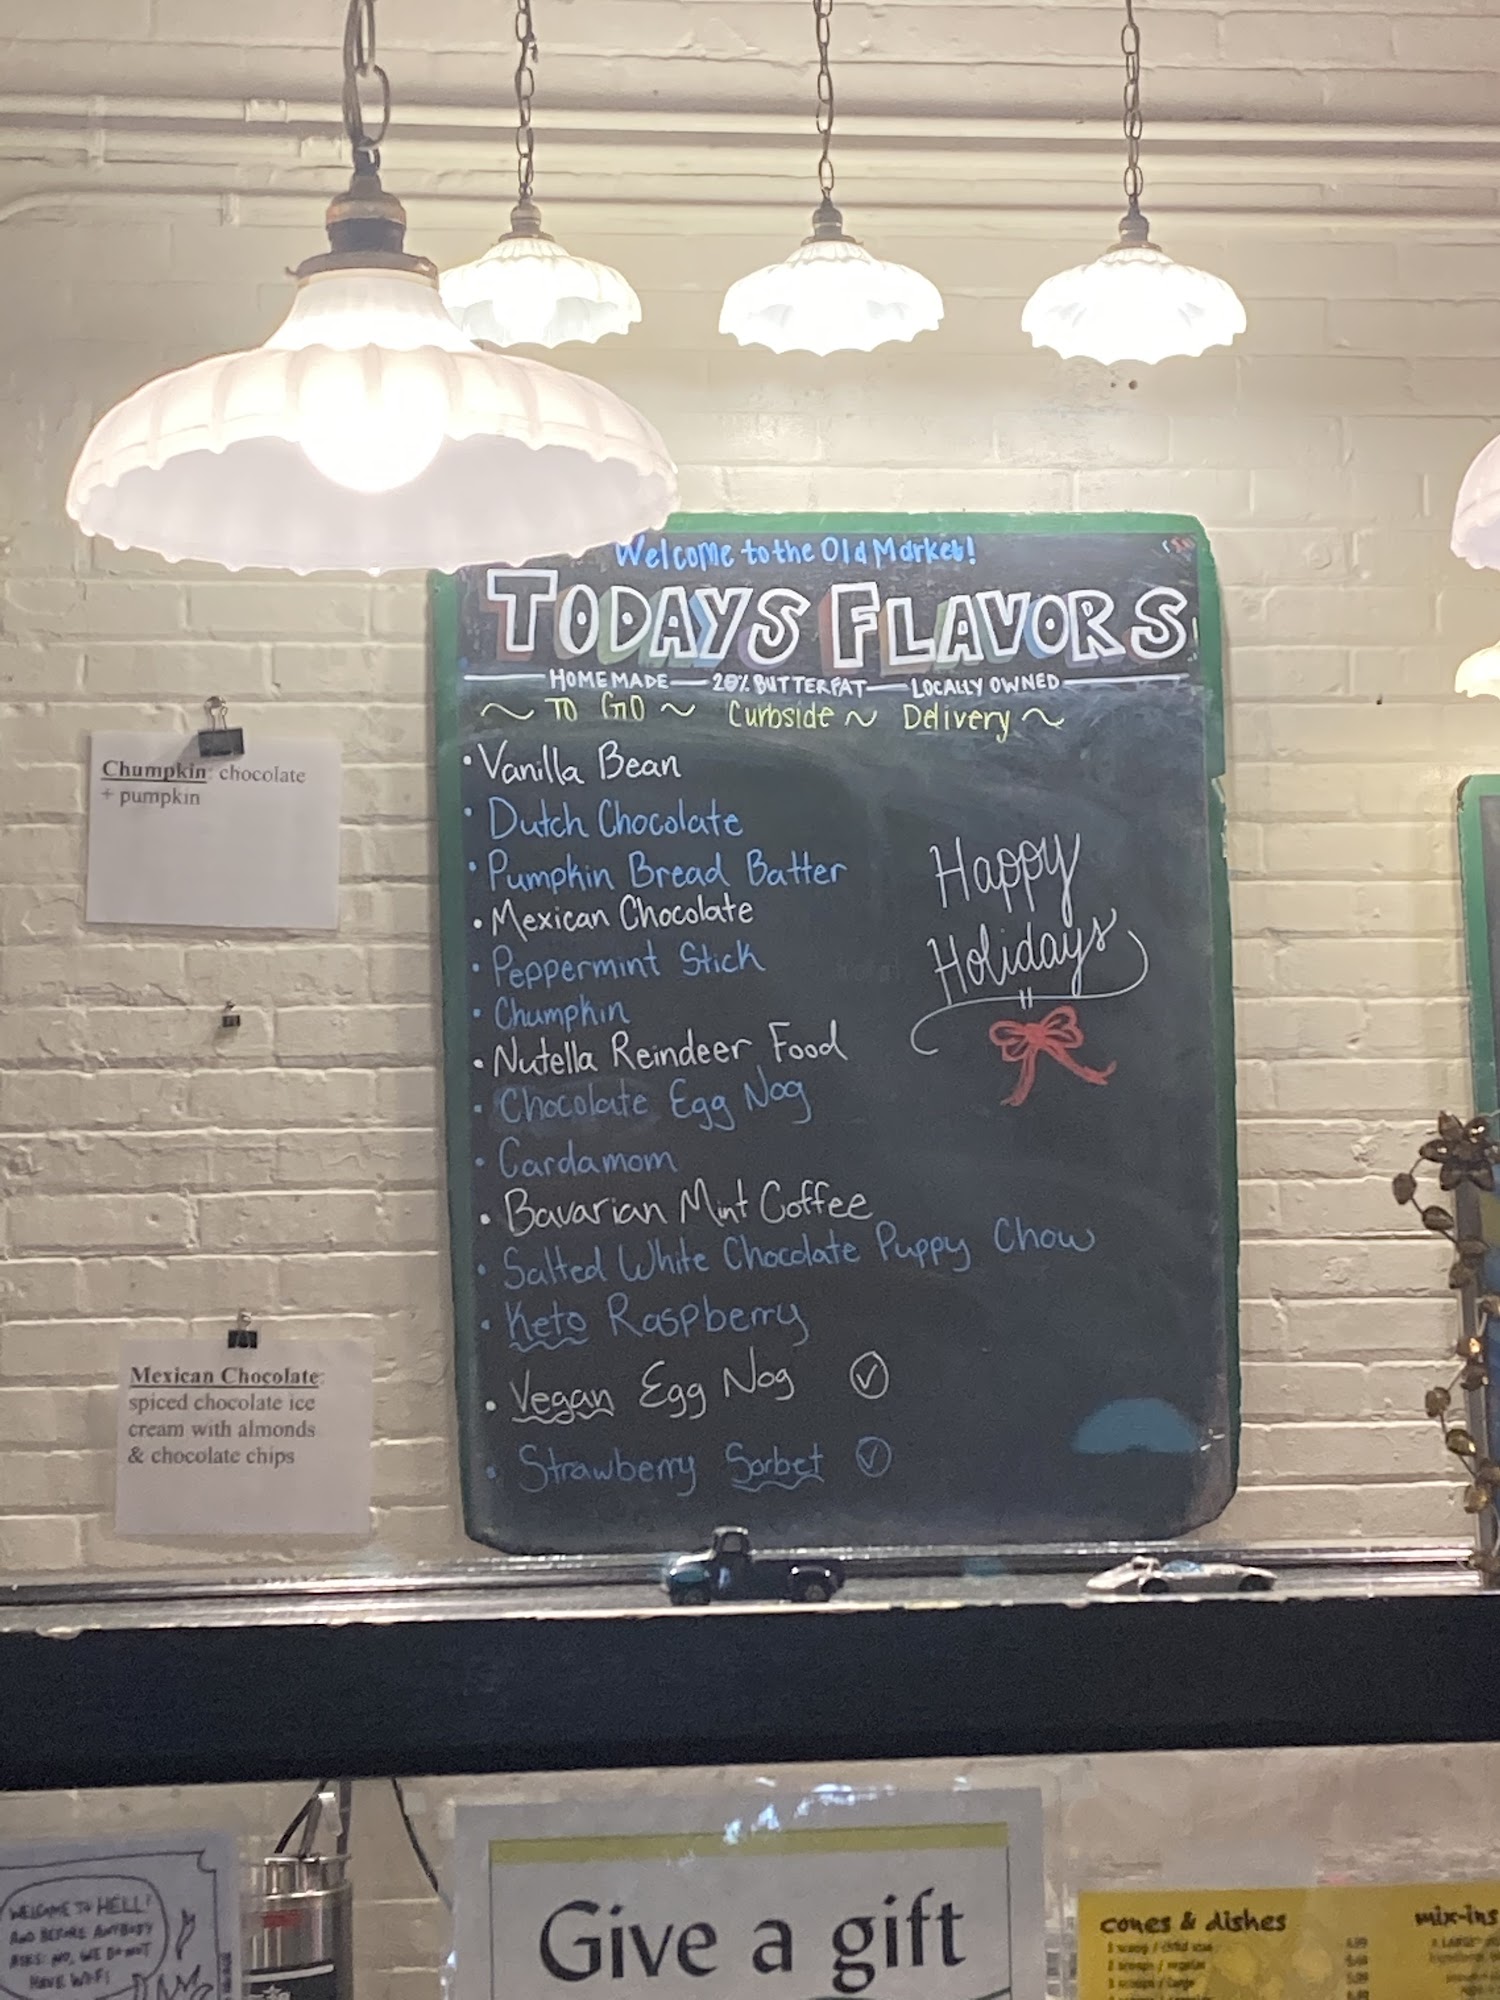 Welcome to the Old Market!
TODAYS FLAVORS
HOMEMADE — 20% BUTTERFAT — LOCALLY OWNED
~ TO GO ~ Curbside ~ Delivery ~
• Vanilla Bean
• Dutch Chocolate
• Pumpkin Bread Batter
• Mexican Chocolate
• Peppermint Stick
• Chumpkin
• Nutella Reindeer Food
• Chocolate Egg Nog
• Cardamom
• Bavarian Mint Coffee
• Salted White Chocolate Puppy Chow
• Keto Raspberry
• Vegan Egg Nog ✓
• Strawberry Sorbet ✓
Happy
Holidays
Chumpkin: chocolate
+ pumpkin
Mexican Chocolate:
spiced chocolate ice
cream with almonds
& chocolate chips
WELCOME TO HELL!
AND BEFORE ANYBODY
ASKS: NO, WE DO NOT
HAVE WIFI
Give a gift
cones & dishes
1 scoop / child size
2 scoops / regular
3 scoops / large
mix-ins